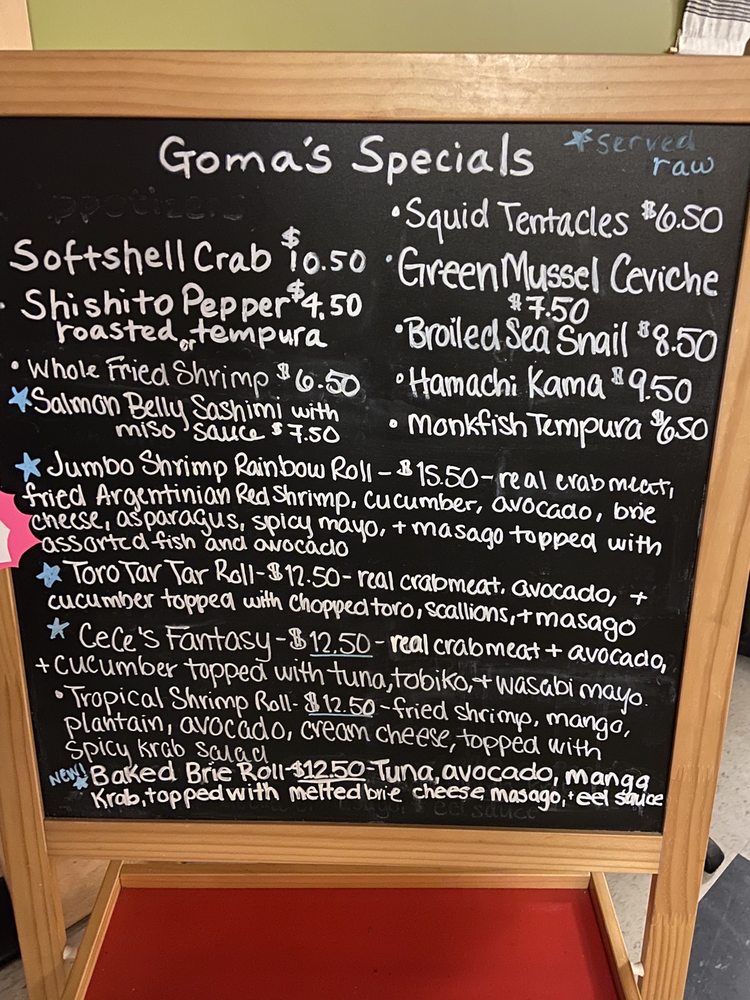 Goma's Specials
★ served
raw
Softshell Crab $10.50
Shishito Pepper $4.50
roasted or tempura
• Whole Fried Shrimp $6.50
★ Salmon Belly Sashimi with
miso sauce $7.50
• Squid Tentacles $6.50
• Green Mussel Ceviche
$7.50
• Broiled Sea Snail $8.50
• Hamachi Kama $9.50
• Monkfish Tempura $6.50
★ Jumbo Shrimp Rainbow Roll - $15.50 - real crab meat,
fried Argentinian Red Shrimp, cucumber, avocado, brie
cheese, asparagus, spicy mayo, + masago topped with
assorted fish and avocado
★ Toro Tar Tar Roll - $12.50 - real crabmeat, avocado, +
cucumber topped with chopped toro, scallions, + masago
★ CeCe's Fantasy - $12.50 - real crabmeat + avocado,
+ cucumber topped with tuna, tobiko, + wasabi mayo.
• Tropical Shrimp Roll - $12.50 - fried shrimp, mango,
plantain, avocado, cream cheese, topped with
spicy krab salad
NEW! ★ Baked Brie Roll - $12.50 - Tuna, avocado, mango
Krab, topped with melted brie cheese masago, + eel sauce